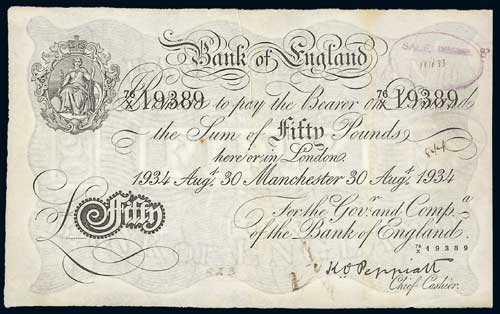 Bank of England
SALE
76/X 19389 to pay the Bearer on 76/X 19389
the Sum of Fifty Pounds
here or in London
1934 Augt. 30 Manchester 30 Augt. 1934
£Fifty
For the Govr and Compa
of the Bank of England.
76/X 19389
K.O Peppiatt
Chief Cashier.